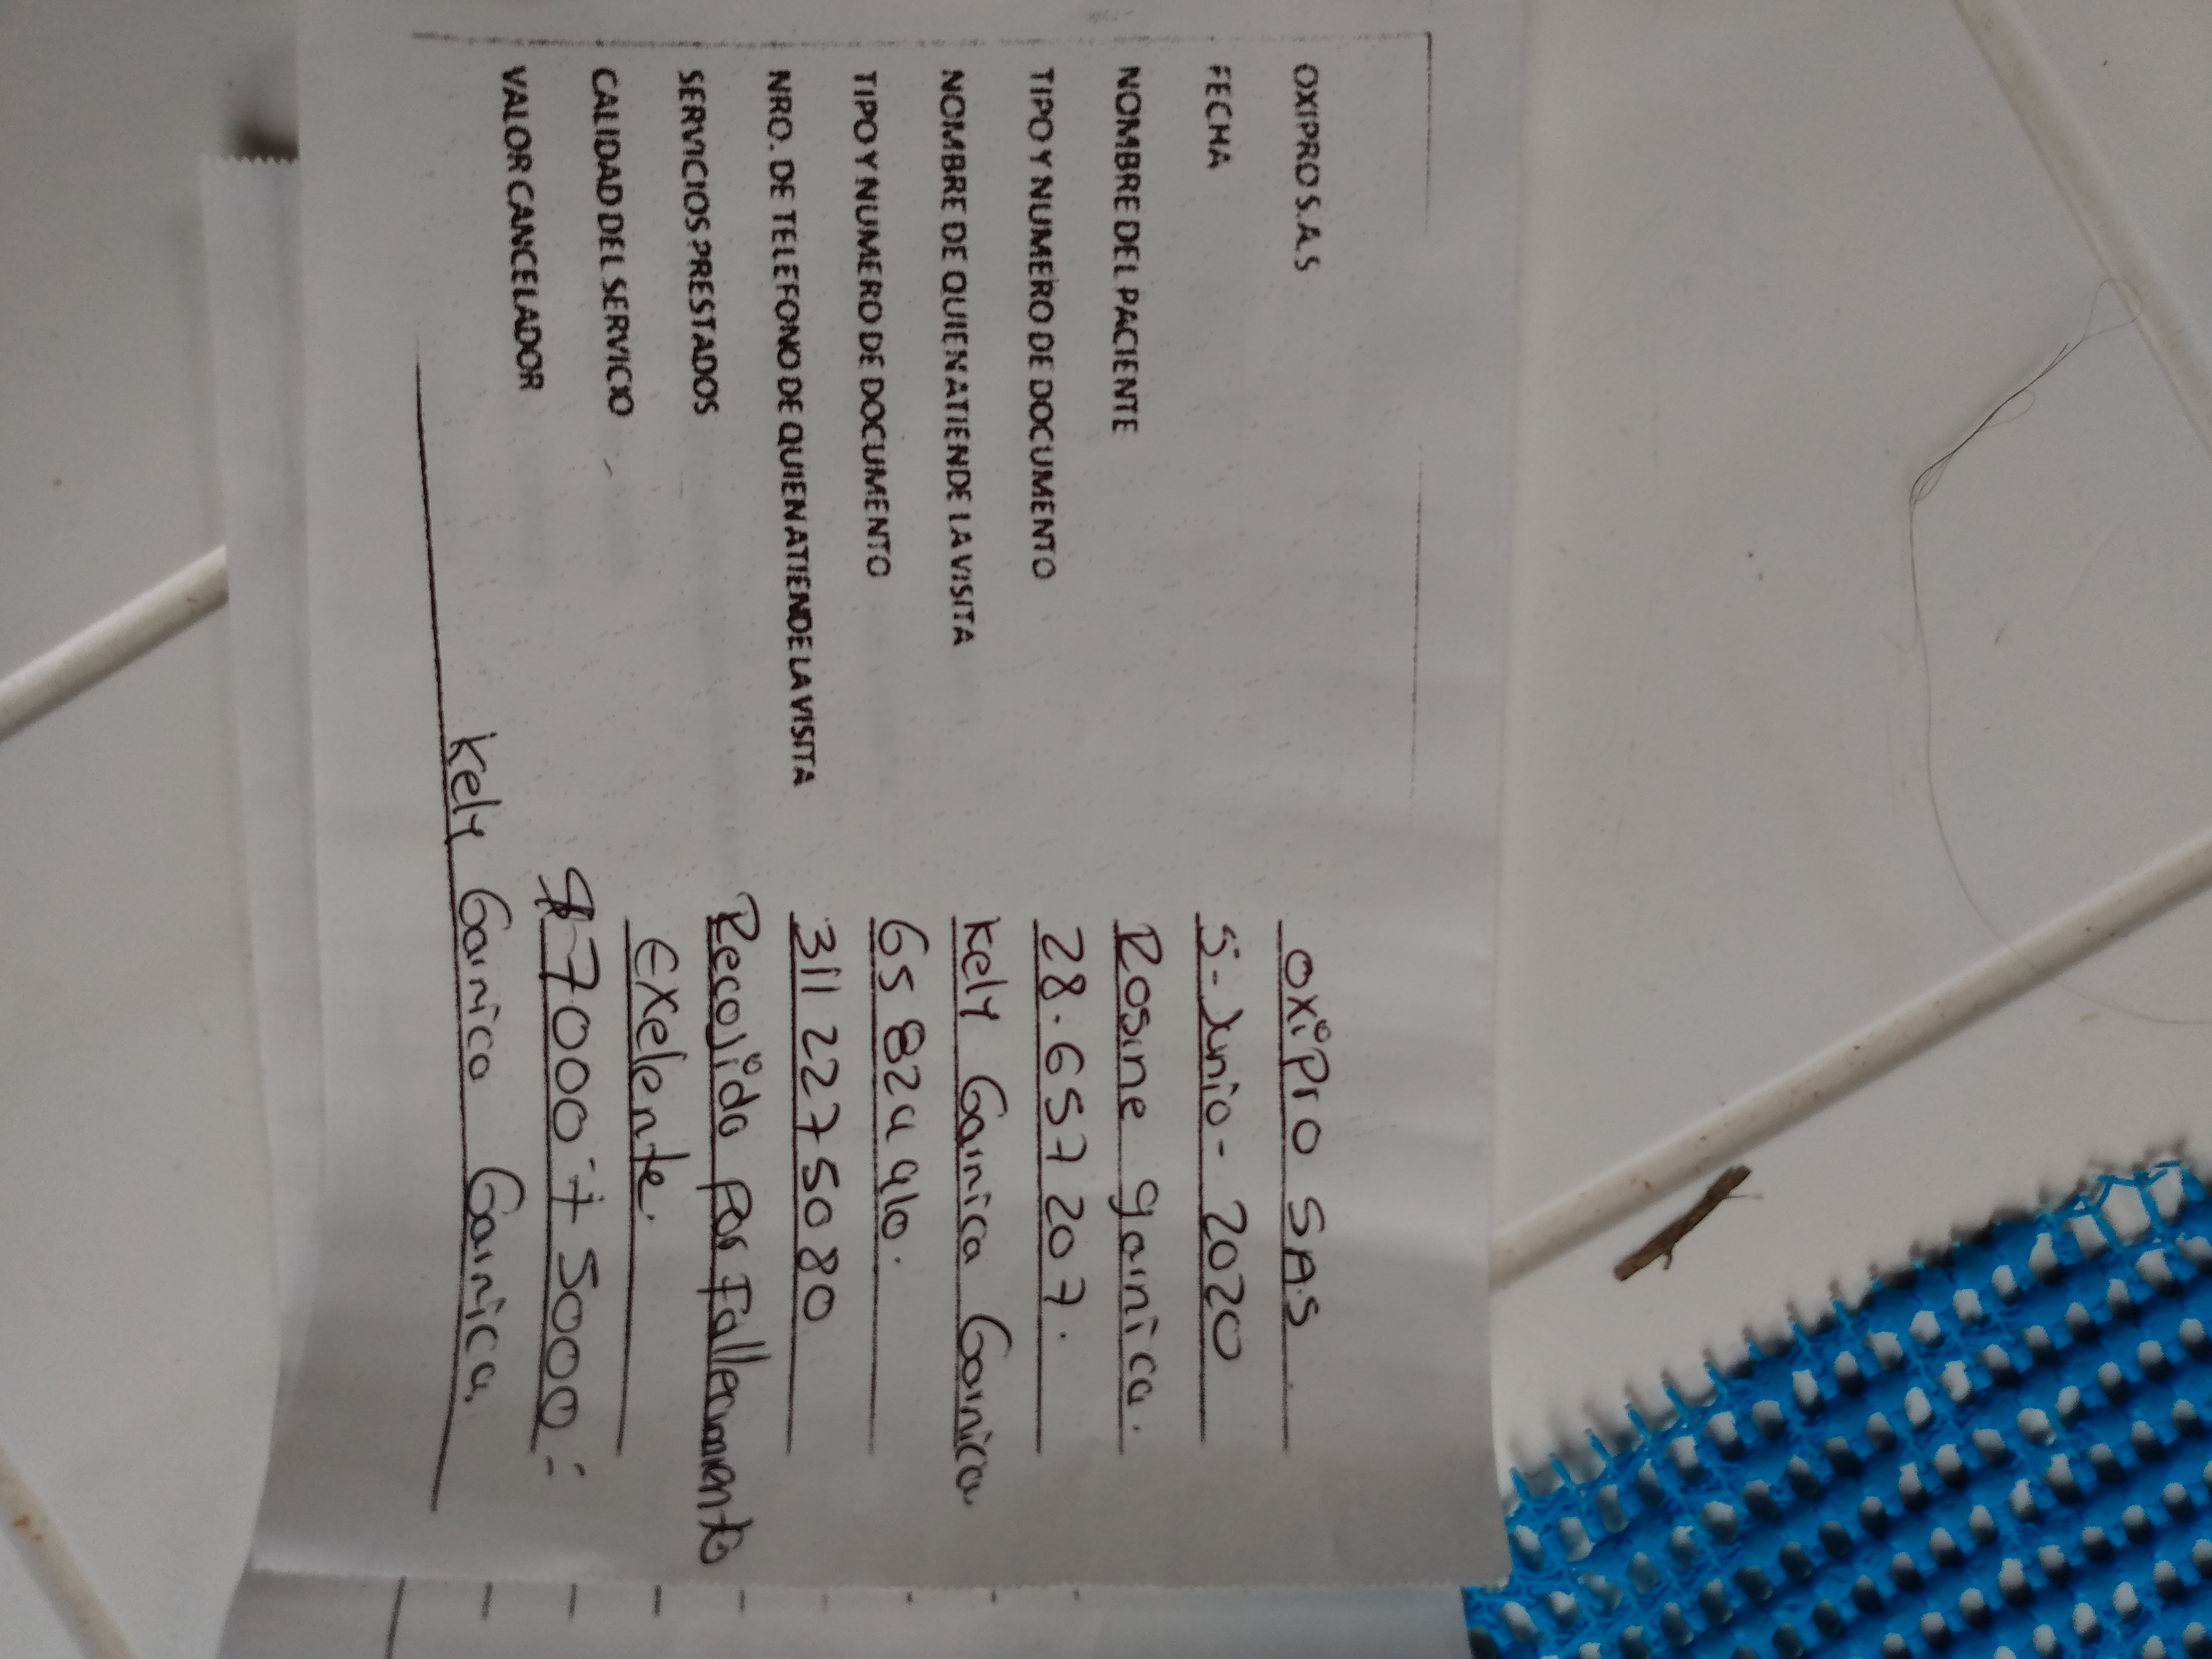 OXIPRO S.A.S oxipro SAS
FECHA 5-Junio-2020
NOMBRE DEL PACIENTE Rosine garnica.
TIPO Y NUMERO DE DOCUMENTO 28.657207.
NOMBRE DE QUIEN ATIENDE LA VISITA Kely Garnica Garnica
TIPO Y NUMERO DE DOCUMENTO 65824410.
NRO. DE TELEFONO DE QUIEN ATIENDE LA VISITA 3112275080
SERVICIOS PRESTADOS Recojida Por Fallecimiento
CALIDAD DEL SERVICIO Exelente.
VALOR CANCELADOR $7000 + 5000
Kely Garnica Garnica